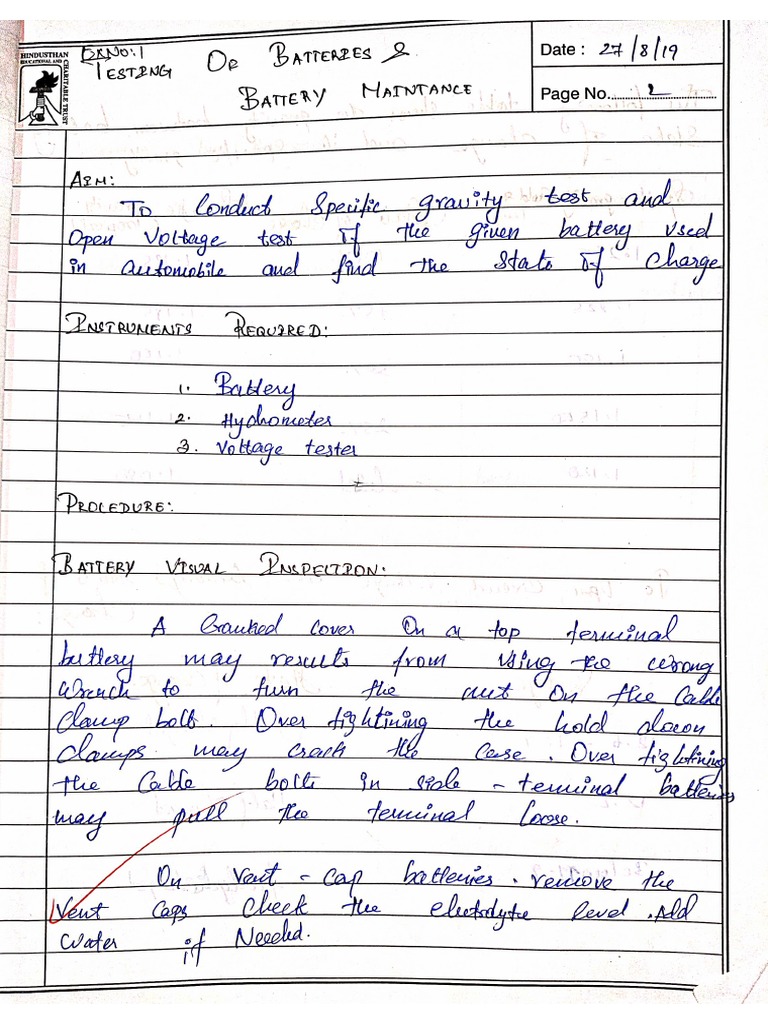 HINDUSTHAN
EDUCATIONAL AND
CHARITABLE TRUST
Ex.No:1
TESTING OF BATTERIES &
BATTERY MAINTANCE
Date : 27/8/19
Page No. 2
AIM:
To Conduct Specific gravity test and
Open Voltage test of the given battery used
in automobile and find the State of Charge
INSTRUMENTS REQUIRED:
1. Battery
2. Hydrometer
3. Voltage tester
PROCEDURE:
BATTERY VISUAL INSPECTION:
A Cracked cover On a top terminal
battery may results from using the wrong
wrench to turn the nut on the Cable
clamp bolt. Over tightining the hold down
clamps may crack the case. Over tightining
the Cable bolts in side - terminal batteries
may pull the terminal loose.
On vent - cap batteries. remove the
Vent caps check the electrolyte level. Add
water if Needed.